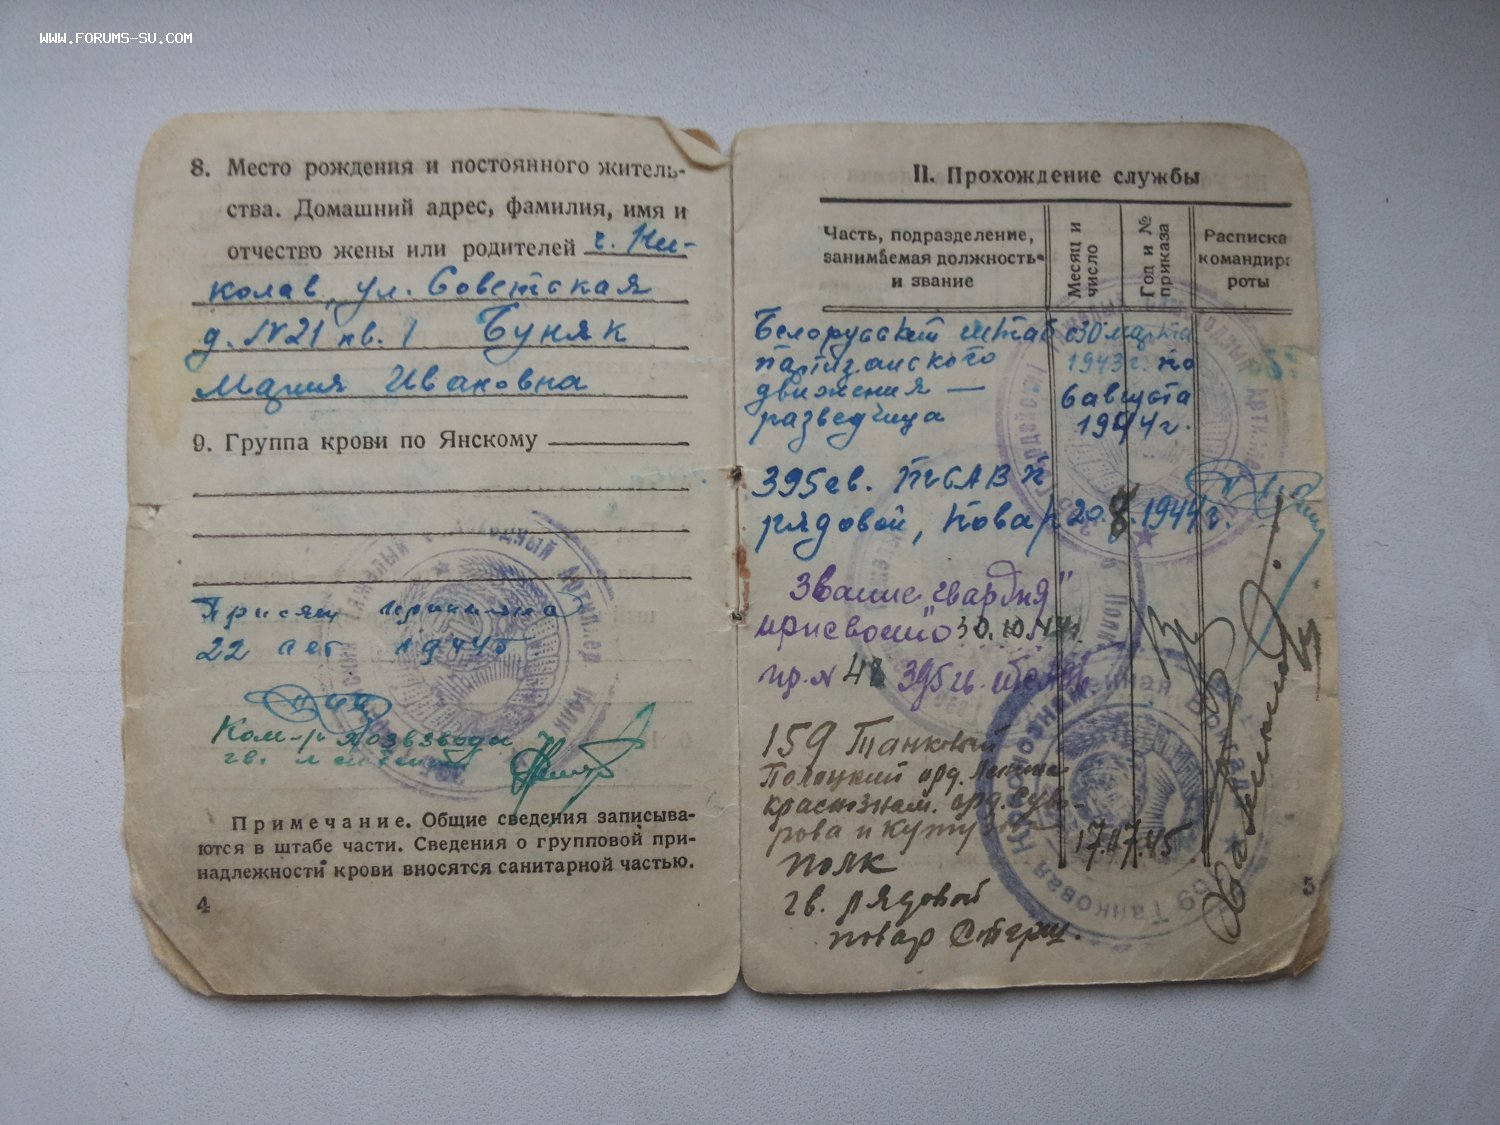 WWW.FORUMS-SU.COM
8. Место рождения и постоянного житель-
ства. Домашний адрес, фамилия, имя и
отчество жены или родителей г. Ни-
колаев, ул. Советская
д. №21 кв. 1 Буняк
Мария Ивановна
9. Группа крови по Янскому
Присягу приняла
22 1944г.
Ком-р взвода
гв. лейтенант
Примечание. Общие сведения записыва-
ются в штабе части. Сведения о групповой при-
надлежности крови вносятся санитарной частью.
4
II. Прохождение службы
Часть, подразделение,
занимаемая должность
и звание
Месяц и
число
Год и №
приказа
Расписка
командира
роты
Белорусский штаб с 30 марта
партизанского 1943г. по
движения — 6 августа
разведчица 1944г.
395 гв. ТСАП
рядовой, повар 20.8.1944г.
Звание "гвардия"
присвоено 30.10.44г.
пр. № 48 395 гв.
159 Танковый
Полоцкий орд. Ленина
краснознам. орд. Суво-
рова и Кутузова
полк 17.07.45
гв. рядовой
повар Старш.
5